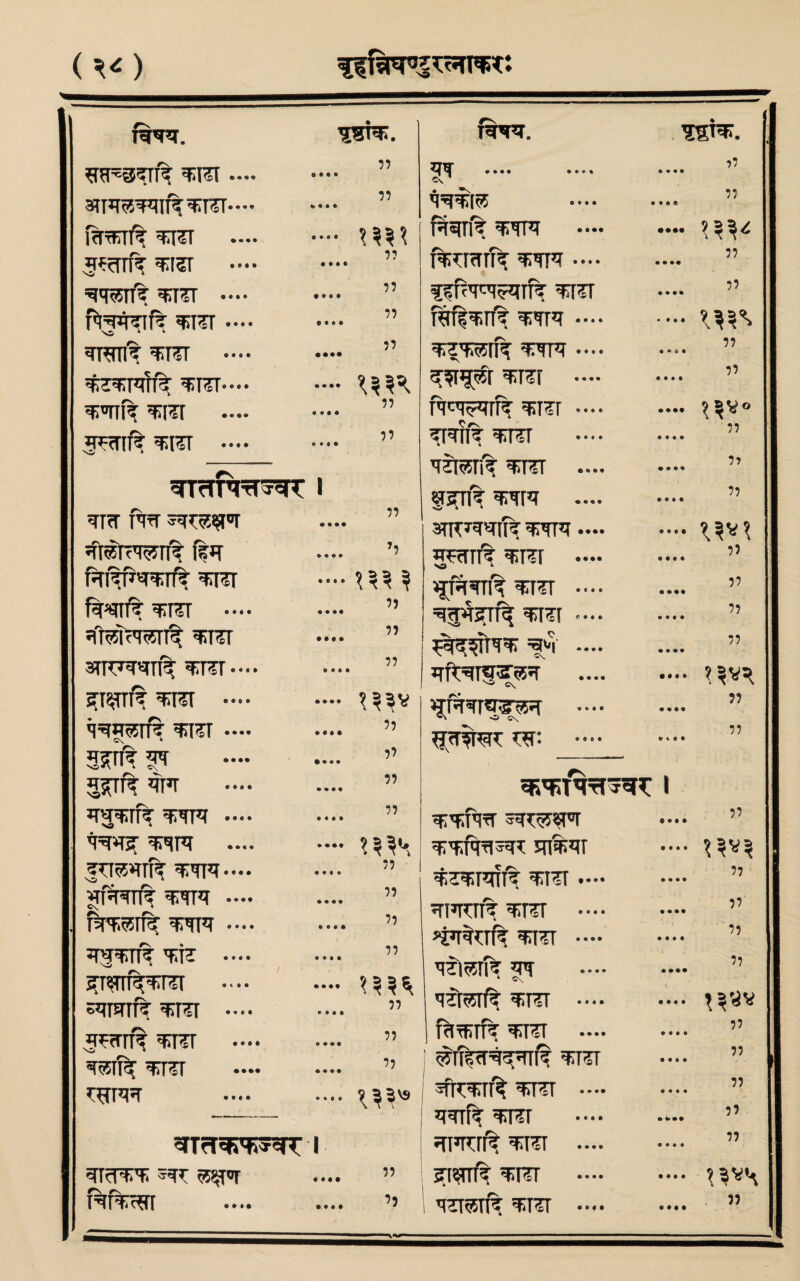 ( २८ )
बृहन्निघण्टुरत्नाकरः
विषय.
पृष्ठांक.
क्षाथ ....
आमलक्यादि क्वाथ.... .... ,,
तिक्तादि क्वाथ .... .... १३३१
मुस्तादि क्वाथ .... .... ,,
क्वाथ .... .... ,,
क्वाथ .... .... ,,
क्वाथ .... .... ,,
कंटकार्यादि क्वाथ.... .... १३३२
कणादि क्वाथ .... .... ,,
मुस्तादि क्वाथ .... .... ,,
वातपित्तज्वर ।
वात पित्त ज्वरलक्षण .... ,,
नीलोत्पलादि हिम .... ,,
क्वाथ .... १३३३
विश्वादि क्वाथ .... .... ,,
नीलोत्पलादि क्वाथ .... ,,
आरग्वधादि क्वाथ.... .... ,,
द्राक्षादि क्वाथ .... .... १३३४
पंचमूलादि क्वाथ .... .... ,,
मुद्गादि यूष .... .... ,,
मुद्गादि .... .... ,,
मधुकादि कषाय .... .... ,,
पंचभद्र कषाय .... .... १३३५
दुरालभादि कषाय.... .... ,,
भूनिंबादि कषाय .... .... ,,
त्रिफलादि कषाय .... .... ,,
मधुकादि फांट .... .... ,,
द्राक्षादि क्वाथ .... .... १३३६
व्याघ्रादि क्वाथ .... .... ,,
मुस्तादि क्वाथ .... .... ,,
बलादि क्वाथ .... .... ,,
रसायन .... .... १३३७
वातकफज्वर ।
वातकफ ज्वर लक्षण .... ,,
चिकित्सा .... .... ,,
विषय.
पृष्ठांक.
यूष .... .... .... ,,
पंचकोल .... .... ,,
निंबादि कषाय .... .... १३३८
किरातादि कषाय .... .... ,,
बृहत्पिप्पल्यादि क्वाथ .... ,,
कषाय .... .... १३३९
कट्फलादि कषाय .... .... ,,
दशमूली क्वाथ .... .... ,,
पिप्पल्यादि क्वाथ .... .... १३४०
दार्वादि क्वाथ .... .... ,,
पटोलादि क्वाथ .... .... ,,
क्षुद्रादि कषाय .... .... ,,
आरग्वधादि कषाय .... .... १३४१
मुस्तादि क्वाथ .... .... ,,
भूनिंबादि क्वाथ .... .... ,,
चातुर्भद्रादि क्वाथ .... .... ,,
चूर्ण .... .... ,,
.... .... १३४२
भूनिंबाद्युद्धूलन .... .... ,,
रसः .... .... ,,
कफपित्तज्वर ।
कफपित्त ज्वरलक्षण .... ,,
कफपित्तज्वर प्रक्रिया .... १३४३
कंटकार्यादि क्वाथ .... .... ,,
नागरादि क्वाथ .... .... ,,
क्वाथ .... .... ,,
पटोलादि यूष .... .... ,,
पटोलादि क्वाथ .... .... १३४४
तिक्तादि क्वाथ .... .... ,,
लोहितचंदनादि क्वाथ .... ,,
क्वाथ .... .... ,,
क्वाथ .... .... ,,
नागरादि क्वाथ .... .... ,,
द्राक्षादि क्वाथ .... .... १३४५
पटोलादि क्वाथ .... .... ,,